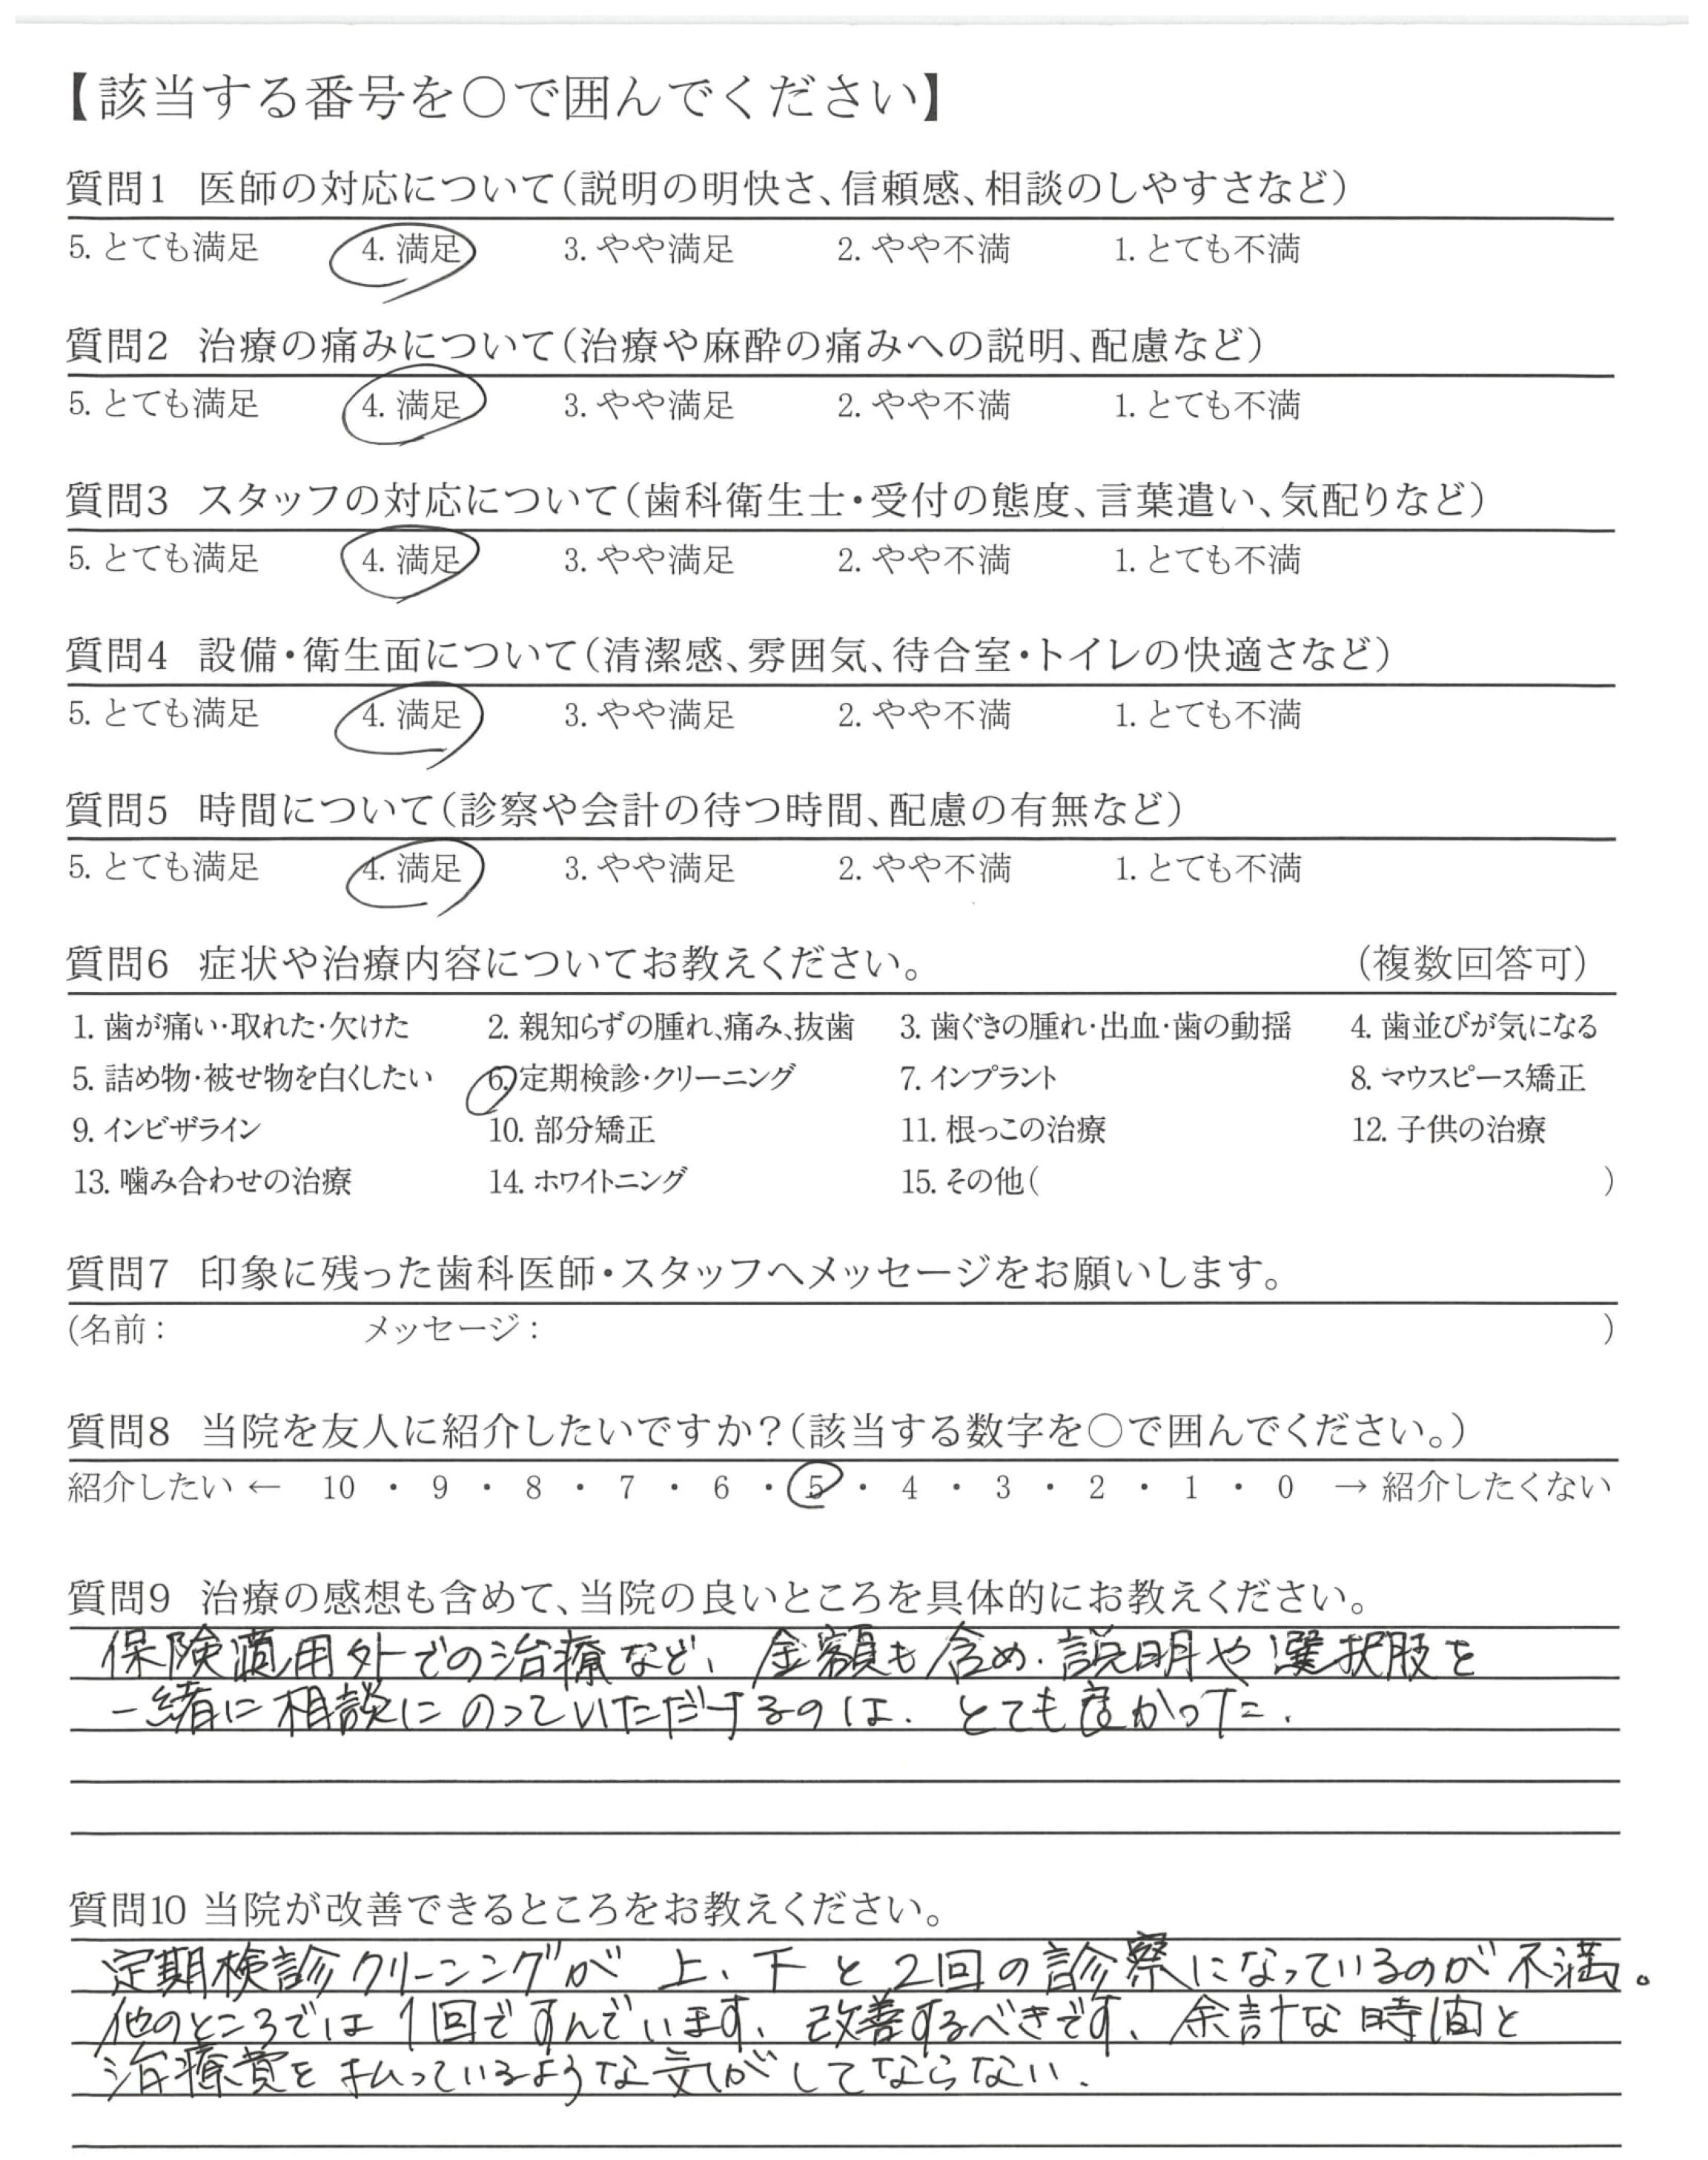 【該当する番号を○で囲んでください】
質問1 医師の対応について(説明の明快さ、信頼感、相談のしやすさなど)
5. とても満足 4. 満足 3. やや満足 2. やや不満 1. とても不満
質問2 治療の痛みについて(治療や麻酔の痛みへの説明、配慮など)
5. とても満足 4. 満足 3. やや満足 2. やや不満 1. とても不満
質問3 スタッフの対応について(歯科衛生士・受付の態度、言葉遣い、気配りなど)
5. とても満足 4. 満足 3. やや満足 2. やや不満 1. とても不満
質問4 設備・衛生面について(清潔感、雰囲気、待合室・トイレの快適さなど)
5. とても満足 4. 満足 3. やや満足 2. やや不満 1. とても不満
質問5 時間について(診察や会計の待つ時間、配慮の有無など)
5. とても満足 4. 満足 3. やや満足 2. やや不満 1. とても不満
質問6 症状や治療内容についてお教えください。 (複数回答可)
1. 歯が痛い・取れた・欠けた 2. 親知らずの腫れ、痛み、抜歯 3. 歯ぐきの腫れ・出血・歯の動揺 4. 歯並びが気になる
5. 詰め物・被せ物を白くしたい 6. 定期検診・クリーニング 7. インプラント 8. マウスピース矯正
9. インビザライン 10. 部分矯正 11. 根っこの治療 12. 子供の治療
13. 噛み合わせの治療 14. ホワイトニング 15. その他( )
質問7 印象に残った歯科医師・スタッフへメッセージをお願いします。
(名前: メッセージ: )
質問8 当院を友人に紹介したいですか?(該当する数字を○で囲んでください。)
紹介したい ← 10 ・ 9 ・ 8 ・ 7 ・ 6 ・ 5 ・ 4 ・ 3 ・ 2 ・ 1 ・ 0 → 紹介したくない
質問9 治療の感想も含めて、当院の良いところを具体的にお教えください。
保険適用外での治療など、金額も含め、説明や選択肢を
一緒に相談にのっていただけるのは、とても良かった.
質問10 当院が改善できるところをお教えください。
定期検診クリーニングが 上、下 と 2回の診察になっているのが不満。
他のところでは 1回ですんでいます、改善するべきです、余計な時間と
治療費を払っているような気がしてならない.